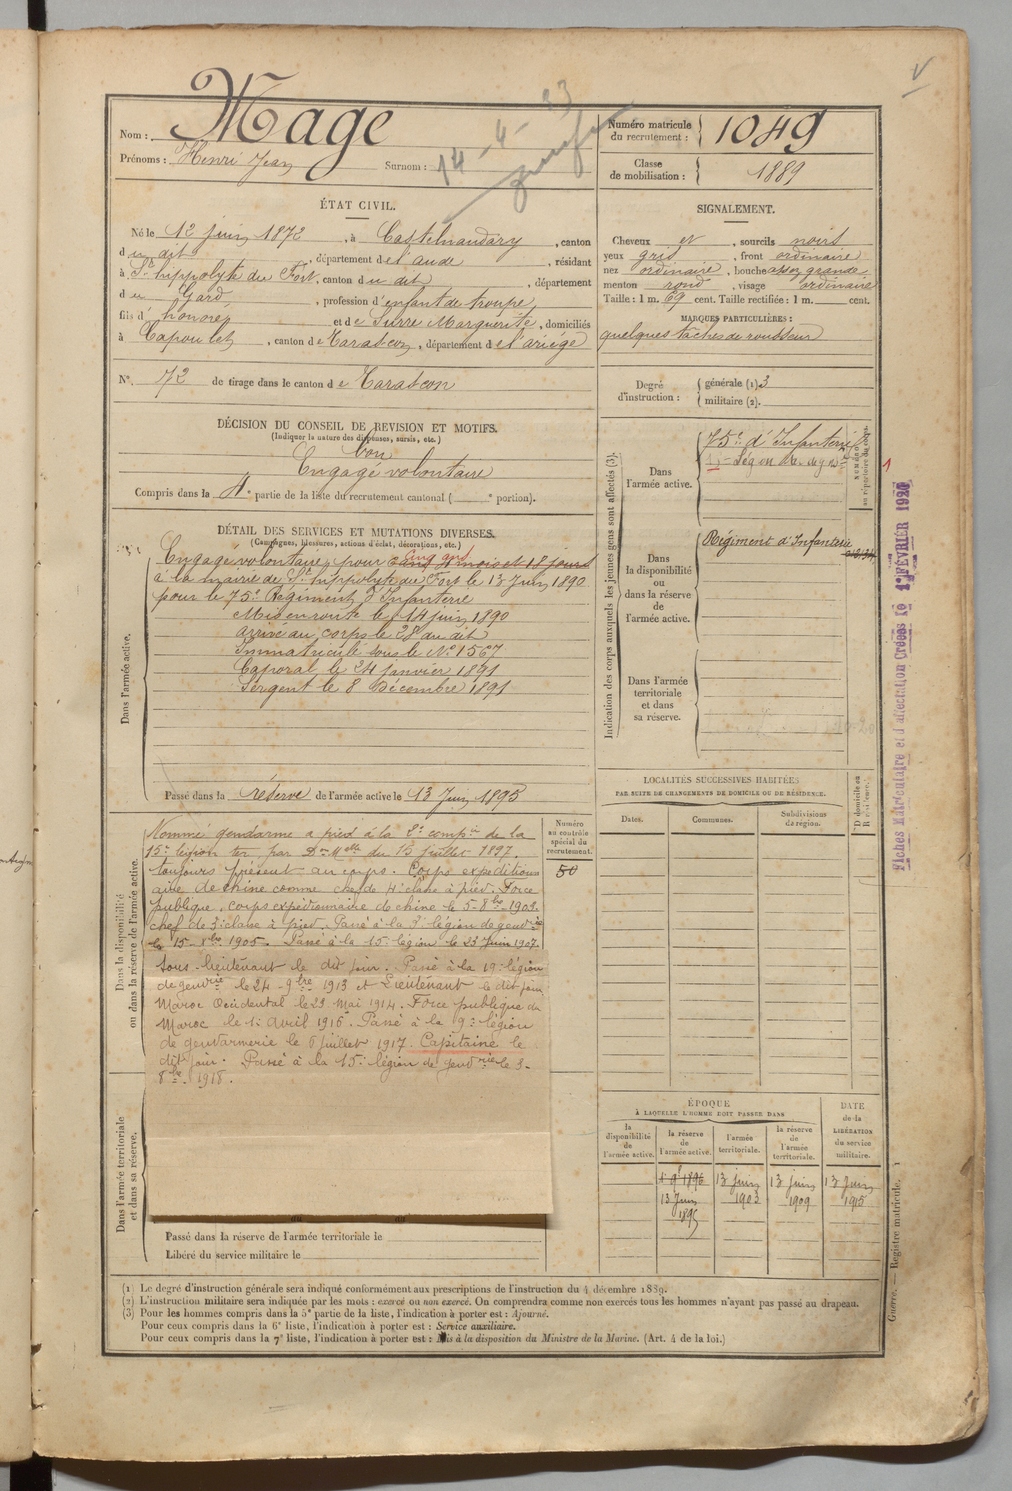 Nom : Mage
Prénoms : Henri Jean Surnom :
14-4-33
Numéro matricule du recrutement : 1049
Classe de mobilisation : 1889
ÉTAT CIVIL.
Né le 12 juin 1872, à Castelnaudary, canton
du dit, département de l'aude, résidant
à St hippolyte du Fort, canton du dit, département
du Gard, profession d'enfant de troupe,
fils d' honoré et de Surre Marguerite, domiciliés
à Capoulet, canton de Tarascon, département de l'ariège
N° 72 de tirage dans le canton de Tarascon
SIGNALEMENT.
Cheveux et, sourcils noirs
yeux gris, front ordinaire
nez ordinaire, bouche assez grande
menton rond, visage ordinaire
Taille : 1 m. 69 cent. Taille rectifiée : 1 m. cent.
MARQUES PARTICULIÈRES :
quelques taches de rousseur
Degré d'instruction : générale (1) 3
militaire (2).
DÉCISION DU CONSEIL DE REVISION ET MOTIFS.
(Indiquer la nature des dispenses, sursis, etc.)
bon
Engagé volontaire
Compris dans la 4e partie de la liste du recrutement cantonal ( e portion).
DÉTAIL DES SERVICES ET MUTATIONS DIVERSES.
(Campagnes, blessures, actions d'éclat, décorations, etc.)
cinq ans
Engagé volontaire pour cinq ans 4 mois et 18 jours
à la mairie de St hippolyte du Fort le 13 Juin 1890
pour le 75e Régiment d'Infanterie
Mis en route le 14 juin 1890
arrivé au corps le 28 du dit
Immatriculé sous le N° 1567
Caporal le 24 janvier 1891
Sergent le 8 Décembre 1891
Dans l'armée active.
Passé dans la réserve de l'armée active le 13 Juin 1895
Indication des corps auxquels les jeunes gens sont affectés (3).
Dans l'armée active.
75e d'Infanterie
15e Légion de
NUMÉROS au répertoire du corps.
Dans la disponibilité ou dans la réserve de l'armée active.
Régiment d'Infanterie
Dans l'armée territoriale et dans sa réserve.
1er FÉVRIER 1920
Fiches Matriculaire et d'affectation Créées le
LOCALITÉS SUCCESSIVES HABITÉES
PAR SUITE DE CHANGEMENTS DE DOMICILE OU DE RÉSIDENCE.
Dates. Communes. Subdivisions de région. D domicile ou R résidence.
Dans la disponibilité ou dans la réserve de l'armée active.
Numéro au contrôle spécial du recrutement.
50
Nommé gendarme à pied à la 8e compie de la
15e légion ter par Don Melle du 15 juillet 1897.
toujours présent au corps. Corps expédition
aire de chine comme chef de 4e classe à pied. Force
publique, corps expéditionnaire de chine le 5-8bre 1902.
chef de 3e classe à pied. Passé à la légion de gendrie
le 15-8bre 1905. Passé à la 15e légion le 23 juin 1907.
Sous-lieutenant le dit jour. Passé à la 19e légion
de gendrie le 24-9bre 1913 et Lieutenant le dit jour
Maroc Occidental le 29 Mai 1914. Force publique du
Maroc le 1er avril 1916. Passé à la 9e légion
de gendarmerie le 6 juillet 1917. Capitaine le
dit jour. Passé à la 15e légion de gendrie le 3-
8bre 1918.
Dans l'armée territoriale et dans sa réserve.
Passé dans la réserve de l'armée territoriale le
Libéré du service militaire le
ÉPOQUE
À LAQUELLE L'HOMME DOIT PASSER DANS
la disponibilité de l'armée active. la réserve de l'armée active. l'armée territoriale. la réserve de l'armée territoriale.
DATE de la LIBÉRATION du service militaire.
1er 9bre 1896 13 juin 1903 13 juin 1909 13 juin 1915
13 Juin 1895
Guerre. — Registre matricule. 1
(1) Le degré d'instruction générale sera indiqué conformément aux prescriptions de l'instruction du 4 décembre 1889.
(2) L'instruction militaire sera indiquée par les mots : exercé ou non exercé. On comprendra comme non exercés tous les hommes n'ayant pas passé au drapeau.
(3) Pour les hommes compris dans la 5e partie de la liste, l'indication à porter est : Ajourné.
Pour ceux compris dans la 6e liste, l'indication à porter est : Service auxiliaire.
Pour ceux compris dans la 7e liste, l'indication à porter est : Mis à la disposition du Ministre de la Marine. (Art. 4 de la loi.)